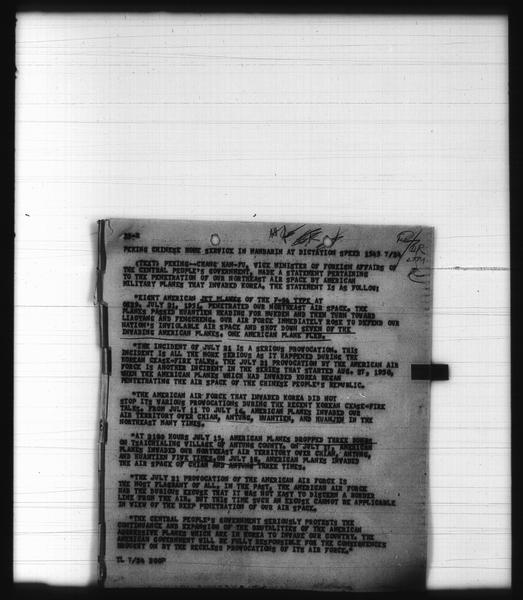 PEKING CHINESE HOME SERVICE IN MANDARIN AT DICTATION SPEED 1363 7/24
(TEXT) PEKING--CHANG HAN-FU, VICE MINISTER OF FOREIGN AFFAIRS OF
THE CENTRAL PEOPLE'S GOVERNMENT, MADE A STATEMENT PERTAINING
TO THE PENETRATION OF OUR NORTHEAST AIR SPACE BY AMERICAN
MILITARY PLANES THAT INVADED KOREA. THE STATEMENT IS AS FOLLOW:
"EIGHT AMERICAN JET PLANES OF THE TYPE AT
JULY 21, 1951, PENETRATED OUR NORTHEAST AIR SPACE. THE
PLANES PASSED KUANTIEN HEADING FOR MUKDEN AND THEN TURN TOWARD
LIAOYANG AND FENGCHENG. OUR AIR FORCE IMMEDIATELY ROSE TO DEFEND OUR
NATION'S INVIOLABLE AIR SPACE AND SHOT DOWN SEVEN OF THE
INVADING AMERICAN PLANES. ONE AMERICAN PLANE FLED.
"THE INCIDENT OF JULY 21 IS A SERIOUS PROVOCATION. THIS
INCIDENT IS ALL THE MORE SERIOUS AS IT HAPPENED DURING THE
KOREAN CEASE-FIRE TALKS. THE JULY 21 PROVOCATION BY THE AMERICAN AIR
FORCE IS ANOTHER INCIDENT IN THE SERIES THAT STARTED AUG. 27, 1950,
WHEN THE AMERICAN PLANES WHICH HAD INVADED KOREA BEGAN
PENETRATING THE AIR SPACE OF THE CHINESE PEOPLE'S REPUBLIC.
"THE AMERICAN AIR FORCE THAT INVADED KOREA DID NOT
STOP ITS VARIOUS PROVOCATIONS DURING THE RECENT KOREAN CEASE-FIRE
TALKS. FROM JULY 11 TO JULY 16, AMERICAN PLANES INVADED OUR
AIR TERRITORY OVER CHIAN, ANTUNG, KUANTIEN, AND HUANJEN IN THE
NORTHEAST MANY TIMES.
"AT HOURS JULY 13, AMERICAN PLANES DROPPED THREE BOMBS
ON VILLAGE OF ANTUNG COUNTY. ON JULY AMERICAN
PLANES INVADED OUR NORTHEAST AIR TERRITORY OVER CHIAN, ANTUNG,
AND KUANTIEN FIVE TIMES. ON JULY 16, AMERICAN PLANES INVADED
THE AIR SPACE OF CHIAN AND ANTUNG THREE TIMES.
"THE JULY 21 PROVOCATION OF THE AMERICAN AIR FORCE IS
THE MOST FLAGRANT OF ALL. IN THE PAST, THE AMERICAN AIR FORCE
HAD THE DUBIOUS EXCUSE THAT IT WAS NOT EASY TO DISCERN A BORDER
LINE FROM THE AIR. BUT THIS TIME SUCH AN EXCUSE CANNOT BE APPLICABLE
IN VIEW OF THE DEEP PENETRATION OF OUR AIR SPACE.
"THE CENTRAL PEOPLE'S GOVERNMENT SERIOUSLY PROTESTS THE
CONTINUANCE AND EXPANSION OF THE BRUTALITIES OF THE AMERICAN
AGGRESSIVE PLANES WHICH ARE IN KOREA TO INVADE OUR COUNTRY. THE
AMERICAN GOVERNMENT WILL BE FULLY RESPONSIBLE FOR THE CONSEQUENCES
BROUGHT ON BY THE RECKLESS PROVOCATIONS OF ITS AIR FORCE."
TL 7/24 200P